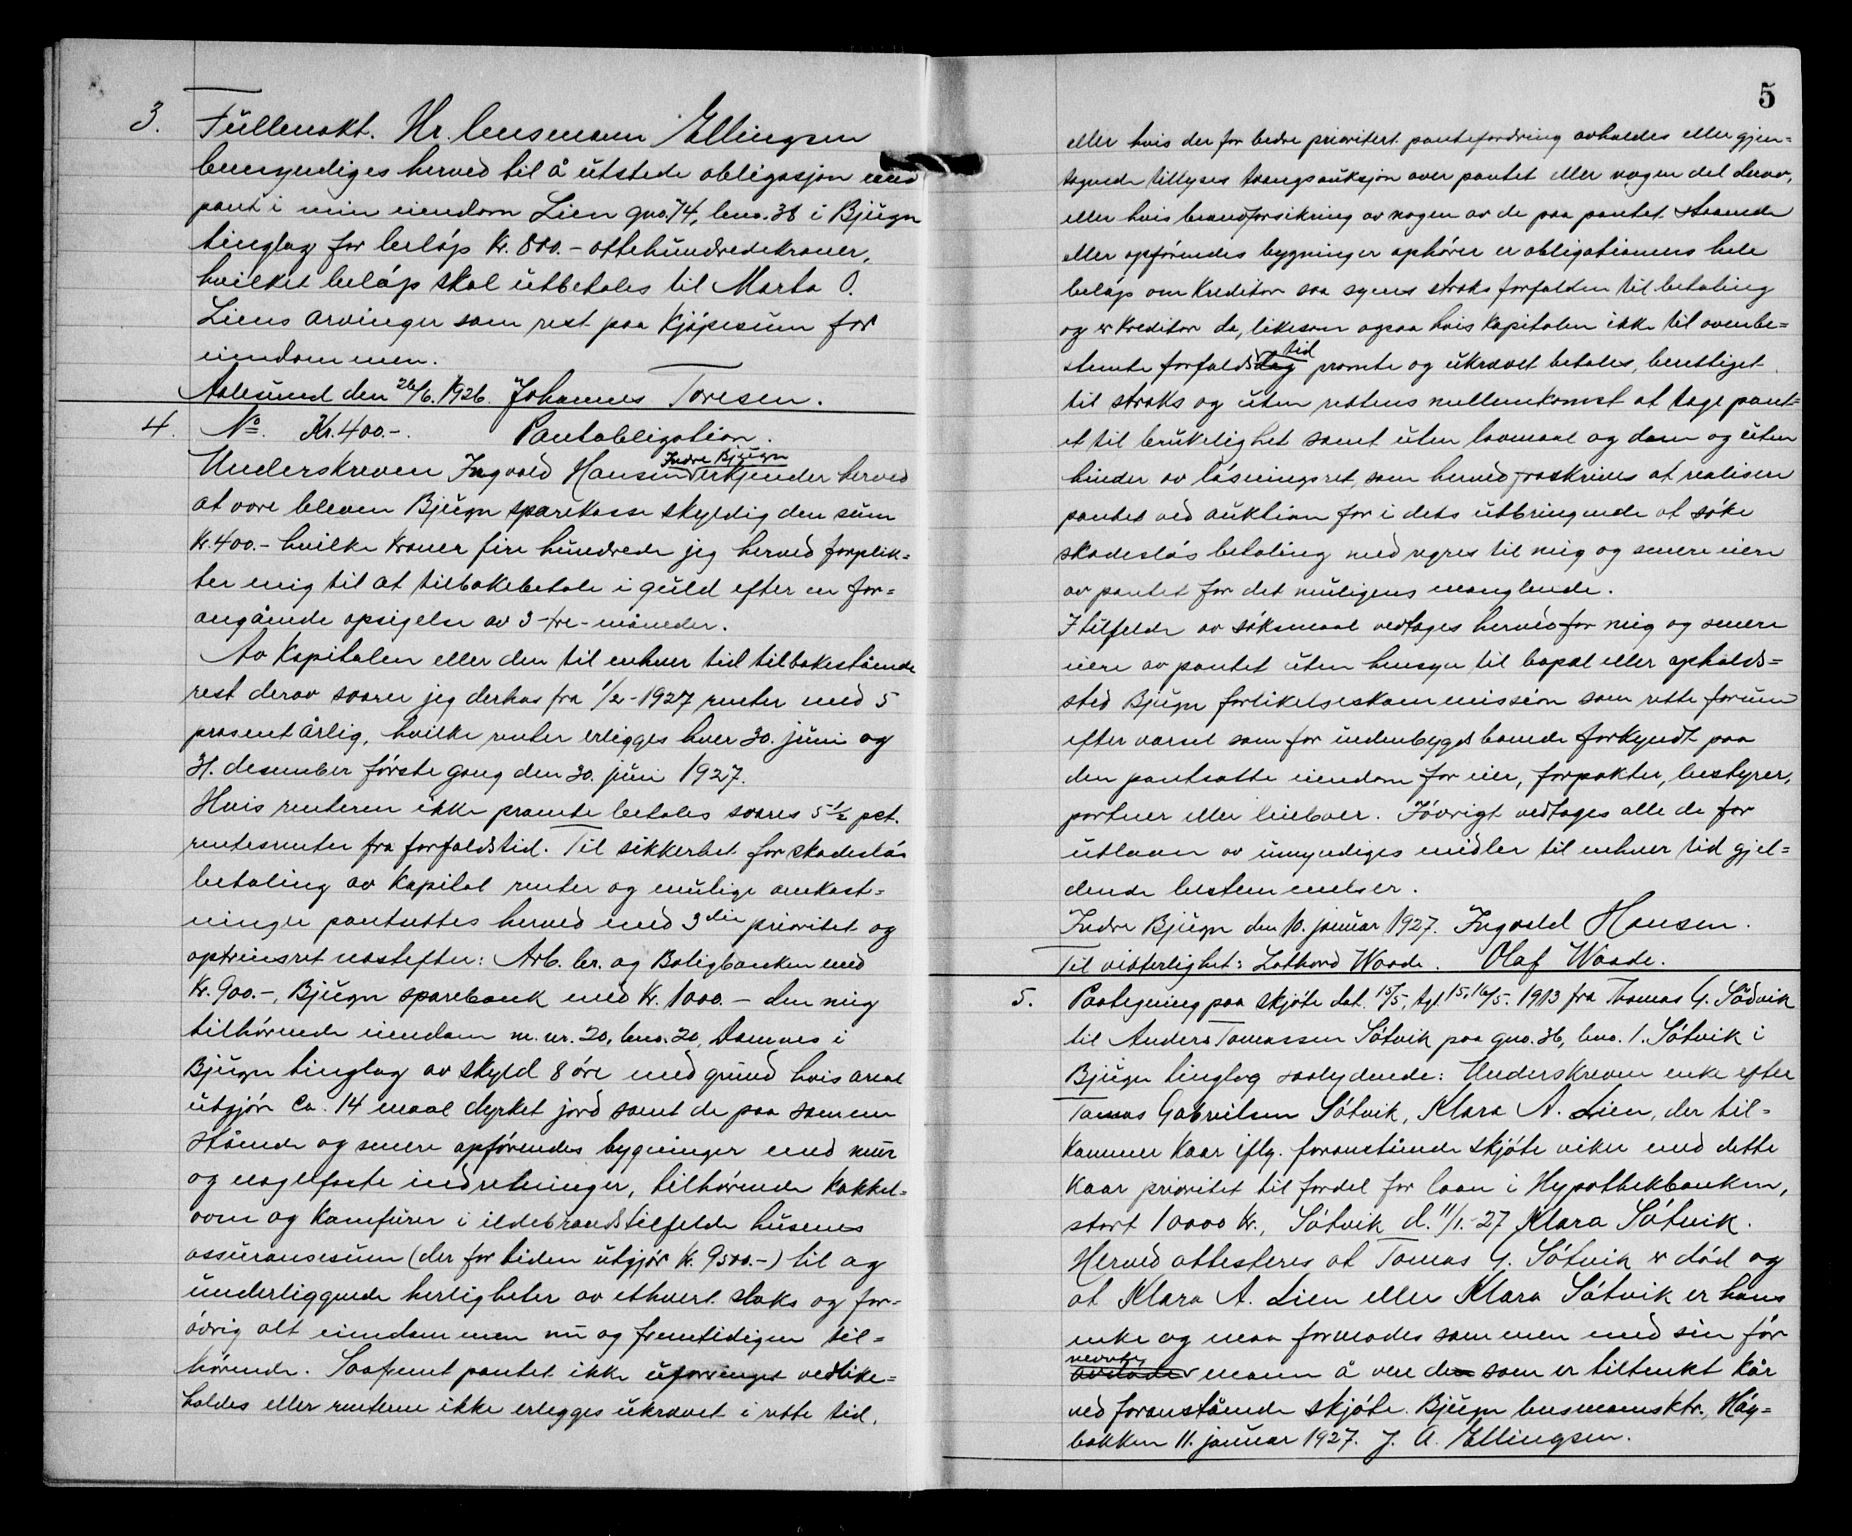 3. Fullmakt. Hr. lensmann Ellingsen
bemyndiges herved til å utstede obligasjon med
pant i min eiendom Lien gno. 74, bno. 36 i Bjugn
tinglag for beløp Kr. 800.- ottehundredekroner,
hvilket beløp skal utbetales til Marta O.
Liens arvinger som rest paa kjøpesum for
eiendommen.
Aalesund den 26/6. 1926. Johannes Toresen.
4. No. Kr. 400.-. Pantobligation.
Indre Bjugn
Underskreven Ingvald Hansen erkjender herved
at være bleven Bjugn sparekasse skyldig den sum
Kr. 400.- hvilke kroner fire hundrede jeg herved forplik=
ter mig til at tilbakebetale i guld efter en for=
angående opsigelse av 3-tre-måneder.
Av Kapitalen eller den til enhver tid tilbakestående
rest derav svarer jeg derhos fra 1/2-1927 renter med 5
prosent årlig, hvilke renter erlægges hver 30. juni og
31. desember første gang den 30. juni 1927.
Hvis renterne ikke promte betales svares 5 1/2 pct.
rentesrenter fra forfaldstid. Til sikkerhet for skadesløs
betaling av Kapital renter og mulige omkost=
ninger pantsettes herved med 3die prioritet og
optrinsret næstefter: Arb. br. og Boligbanken med
Kr. 900.-, Bjugn sparebank med Kr. 1000.- den mig
tilhørende eiendom m. nr. 20, bno. 20, Damnes i
Bjugn tinglag av skyld 8 øre med grund hvis areal
utgjør ca. 14 maal dyrket jord samt de paa samme
stående og senere opførendes bygninger med mur
og nagelfaste indretninger, tilhørende kakkel=
ovn og komfurer i ildebrandstilfelde husenes
assuransesum (der for tiden utgjør Kr. 9500.-) til og
underliggende herligheter av ethvert slaks og for=
øvrig alt eiendommen nu og fremtidigen til=
hørende. Saafremt pantet ikke uforringet vedlike=
holdes eller renterne ikke erlegges ukrævet i rette tid,
5
eller hvis der for bedre prioritert pantefordring avholdes eller gjen=
tagende tillyses tvangsauksjon over pantet eller nogen del derav,
eller hvis brandforsikring av nogen av de paa pantet staaende
eller opførendes bygninger ophører er obligationens hele
beløp om Kreditor saa synes straks forfalden til betaling
og er Kreditor da, likesom ogsaa hvis Kapitalen ikke til ovenbe=
tid
stemte forfaldsdag promte og ukrævet betales, berettiget
til straks og uten rettens mellemkomst at tage pant=
et til brukelighet samt uten lovmaal og dom og uten
hinder av løsningsret, som herved fraskrives at realisere
pantet ved auktion for i dets utbringende at søke
skadesløs betaling med regres til mig og senere eiere
av pantet for det muligens manglende.
I tilfelde av søksmaal vedtages herved for mig og senere
eiere av pantet uten hensyn til bopæl eller opholds=
sted Bjugn forlikelseskommission som rette forum
efter varsel som for indenbygds boende forkyndt paa
den pantsatte eiendom for eier, forpakter, bestyrer,
portner eller leieboer. Iøvrigt vedtages alle de for
utlaan av umyndiges midler til enhver tid gjel=
dende bestemmelser.
Indre Bjugn den 10. januar 1927. Ingvald Hansen.
Til vitterlighet: Lothard Waade. Olaf Waade.
5. Paategning paa skjøte dat. 15/5, tgl. 15, 16/5. 1913 fra Thomas G. Sødvik
til Anders Tomassen Søtvik paa gno. 36, bno. 1. Søtvik i
Bjugn tinglag saalydende: Underskreven enke efter
Tomas Gabrilsen Søtvik, Klara A. Lien, der til=
kommer kaar iflg. foranstående skjøte viker med dette
kaar prioritet til fordel for laan i Hypothekbanken,
stort 10000 Kr., Søtvik d. 11/1.-27 Klara Søtvik.
Herved attesteres at Tomas G. Søtvik er død og
at Klara A. Lien eller Klara Søtvik er hans
enke og maa formodes sammen med sin før
nevnte
avdøde mann å være den som er tiltenkt kår
ved foranstående skjøte. Bjugn lensmannsktr., Høg=
bakken 11. januar 1927. J. A. Ellingsen.